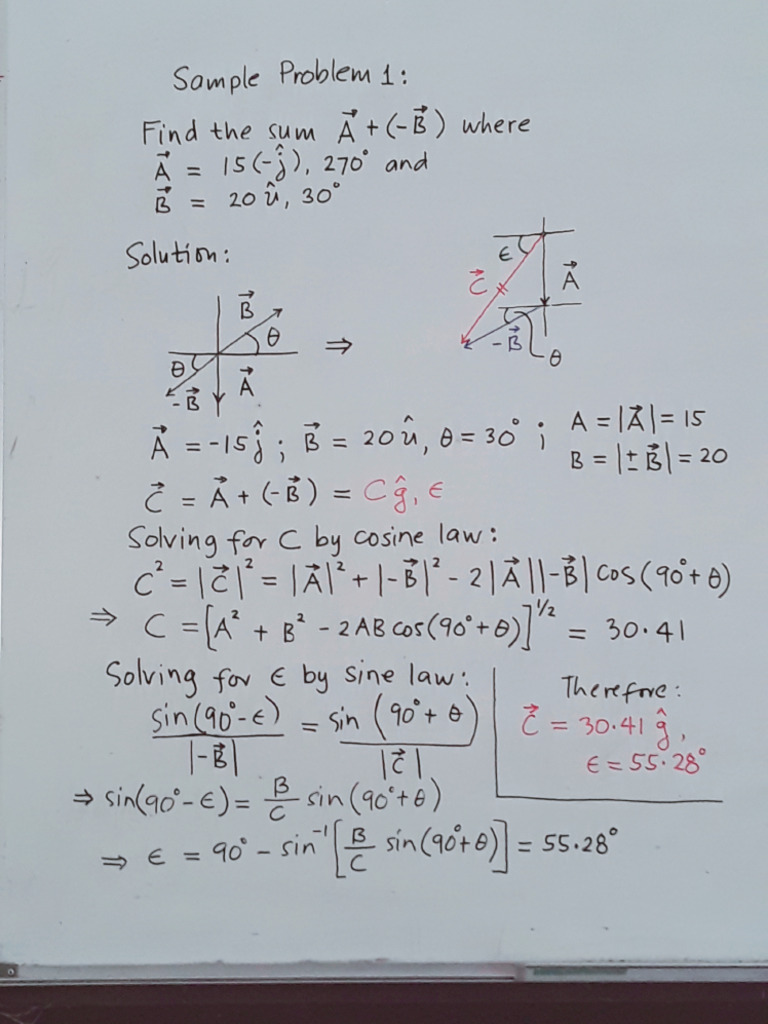 Sample Problem 1:
Find the sum A⃗ + (-B⃗) where
A⃗ = 15(-ĵ), 270° and
B⃗ = 20 û, 30°
Solution:
ϵ
C⃗
A⃗
-B⃗
θ
B⃗
θ
θ
⇒
-B⃗
A⃗
A⃗ = -15ĵ ; B⃗ = 20 û, θ = 30° ; A = |A⃗| = 15
B = |±B⃗| = 20
C⃗ = A⃗ + (-B⃗) = Cĝ, ϵ
Solving for C by cosine law:
C² = |C⃗|² = |A⃗|² + |-B⃗|² - 2|A⃗||-B⃗| cos(90° + θ)
⇒ C = [A² + B² - 2AB cos(90° + θ)]^1/2 = 30.41
Solving for ϵ by sine law:
sin(90° - ϵ) / |-B⃗| = sin(90° + θ) / |C⃗|
⇒ sin(90° - ϵ) = B/C sin(90° + θ)
⇒ ϵ = 90° - sin⁻¹[B/C sin(90° + θ)] = 55.28°
Therefore:
C⃗ = 30.41 ĝ,
ϵ = 55.28°